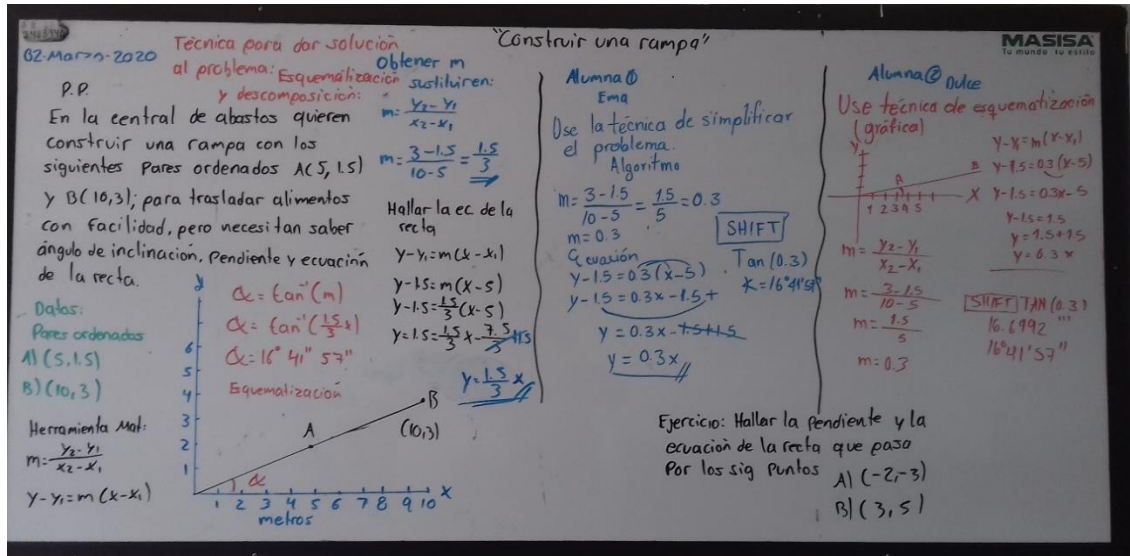 02-Marzo-2020
"Construir una rampa"
MASISA
Tu mundo, tu estilo
Técnica para dar solución
al problema: Esquematización
y descomposición:
P.P.
En la central de abastos quieren
construir una rampa con los
siguientes Pares ordenados A(5,1.5)
y B(10,3); para trasladar alimentos
con facilidad, pero necesitan saber
ángulo de inclinación, Pendiente y ecuación
de la recta.
Datos:
Pares ordenados
A) (5,1.5)
B) (10,3)
Herramienta Mat:
m= y₂-y₁ / x₂-x₁
y-y₁=m(x-x₁)
α = tan⁻¹(m)
α = tan⁻¹(1.5/3 x)
α = 16° 41" 57"
Esquematización
y
6
5
4
3
2
1
A
B
(10,3)
α
1 2 3 4 5 6 7 8 9 10 x
metros
obtener m
sustituir en:
m= y₂-y₁ / x₂-x₁
m= 3-1.5 / 10-5 = 1.5/3
Hallar la ec de la
recta
y-y₁=m(x-x₁)
y-1.5=m(x-5)
y-1.5=1.5/3(x-5)
y=1.5=1.5/3x-7.5/3+1.5
y=1.5/3 x
Alumna ①
Ema
Use la técnica de simplificar
el problema.
Algoritmo
m= 3-1.5 / 10-5 = 1.5/5 = 0.3
m=0.3
Ecuación
y-1.5=0.3(x-5)
y-1.5=0.3x-1.5+
y=0.3x-1.5+1.5
y=0.3x
SHIFT
Tan(0.3)
=16°41'57"
Alumna ② Dulce
Use técnica de esquematización
(gráfica)
y
A
B
1 2 3 4 5
X
m= y₂-y₁ / x₂-x₁
m= 3-1.5 / 10-5
m= 1.5 / 5
m=0.3
y-y₁=m(x-x₁)
y-1.5=0.3(x-5)
y-1.5=0.3x-5
y-1.5=1.5
y=1.5+1.5
y=0.3x
SHIFT TAN(0.3)
16.6992 "'
16°41'57"
Ejercicio: Hallar la pendiente y la
ecuación de la recta que pasa
Por los sig puntos A) (-2,-3)
B) (3,5)